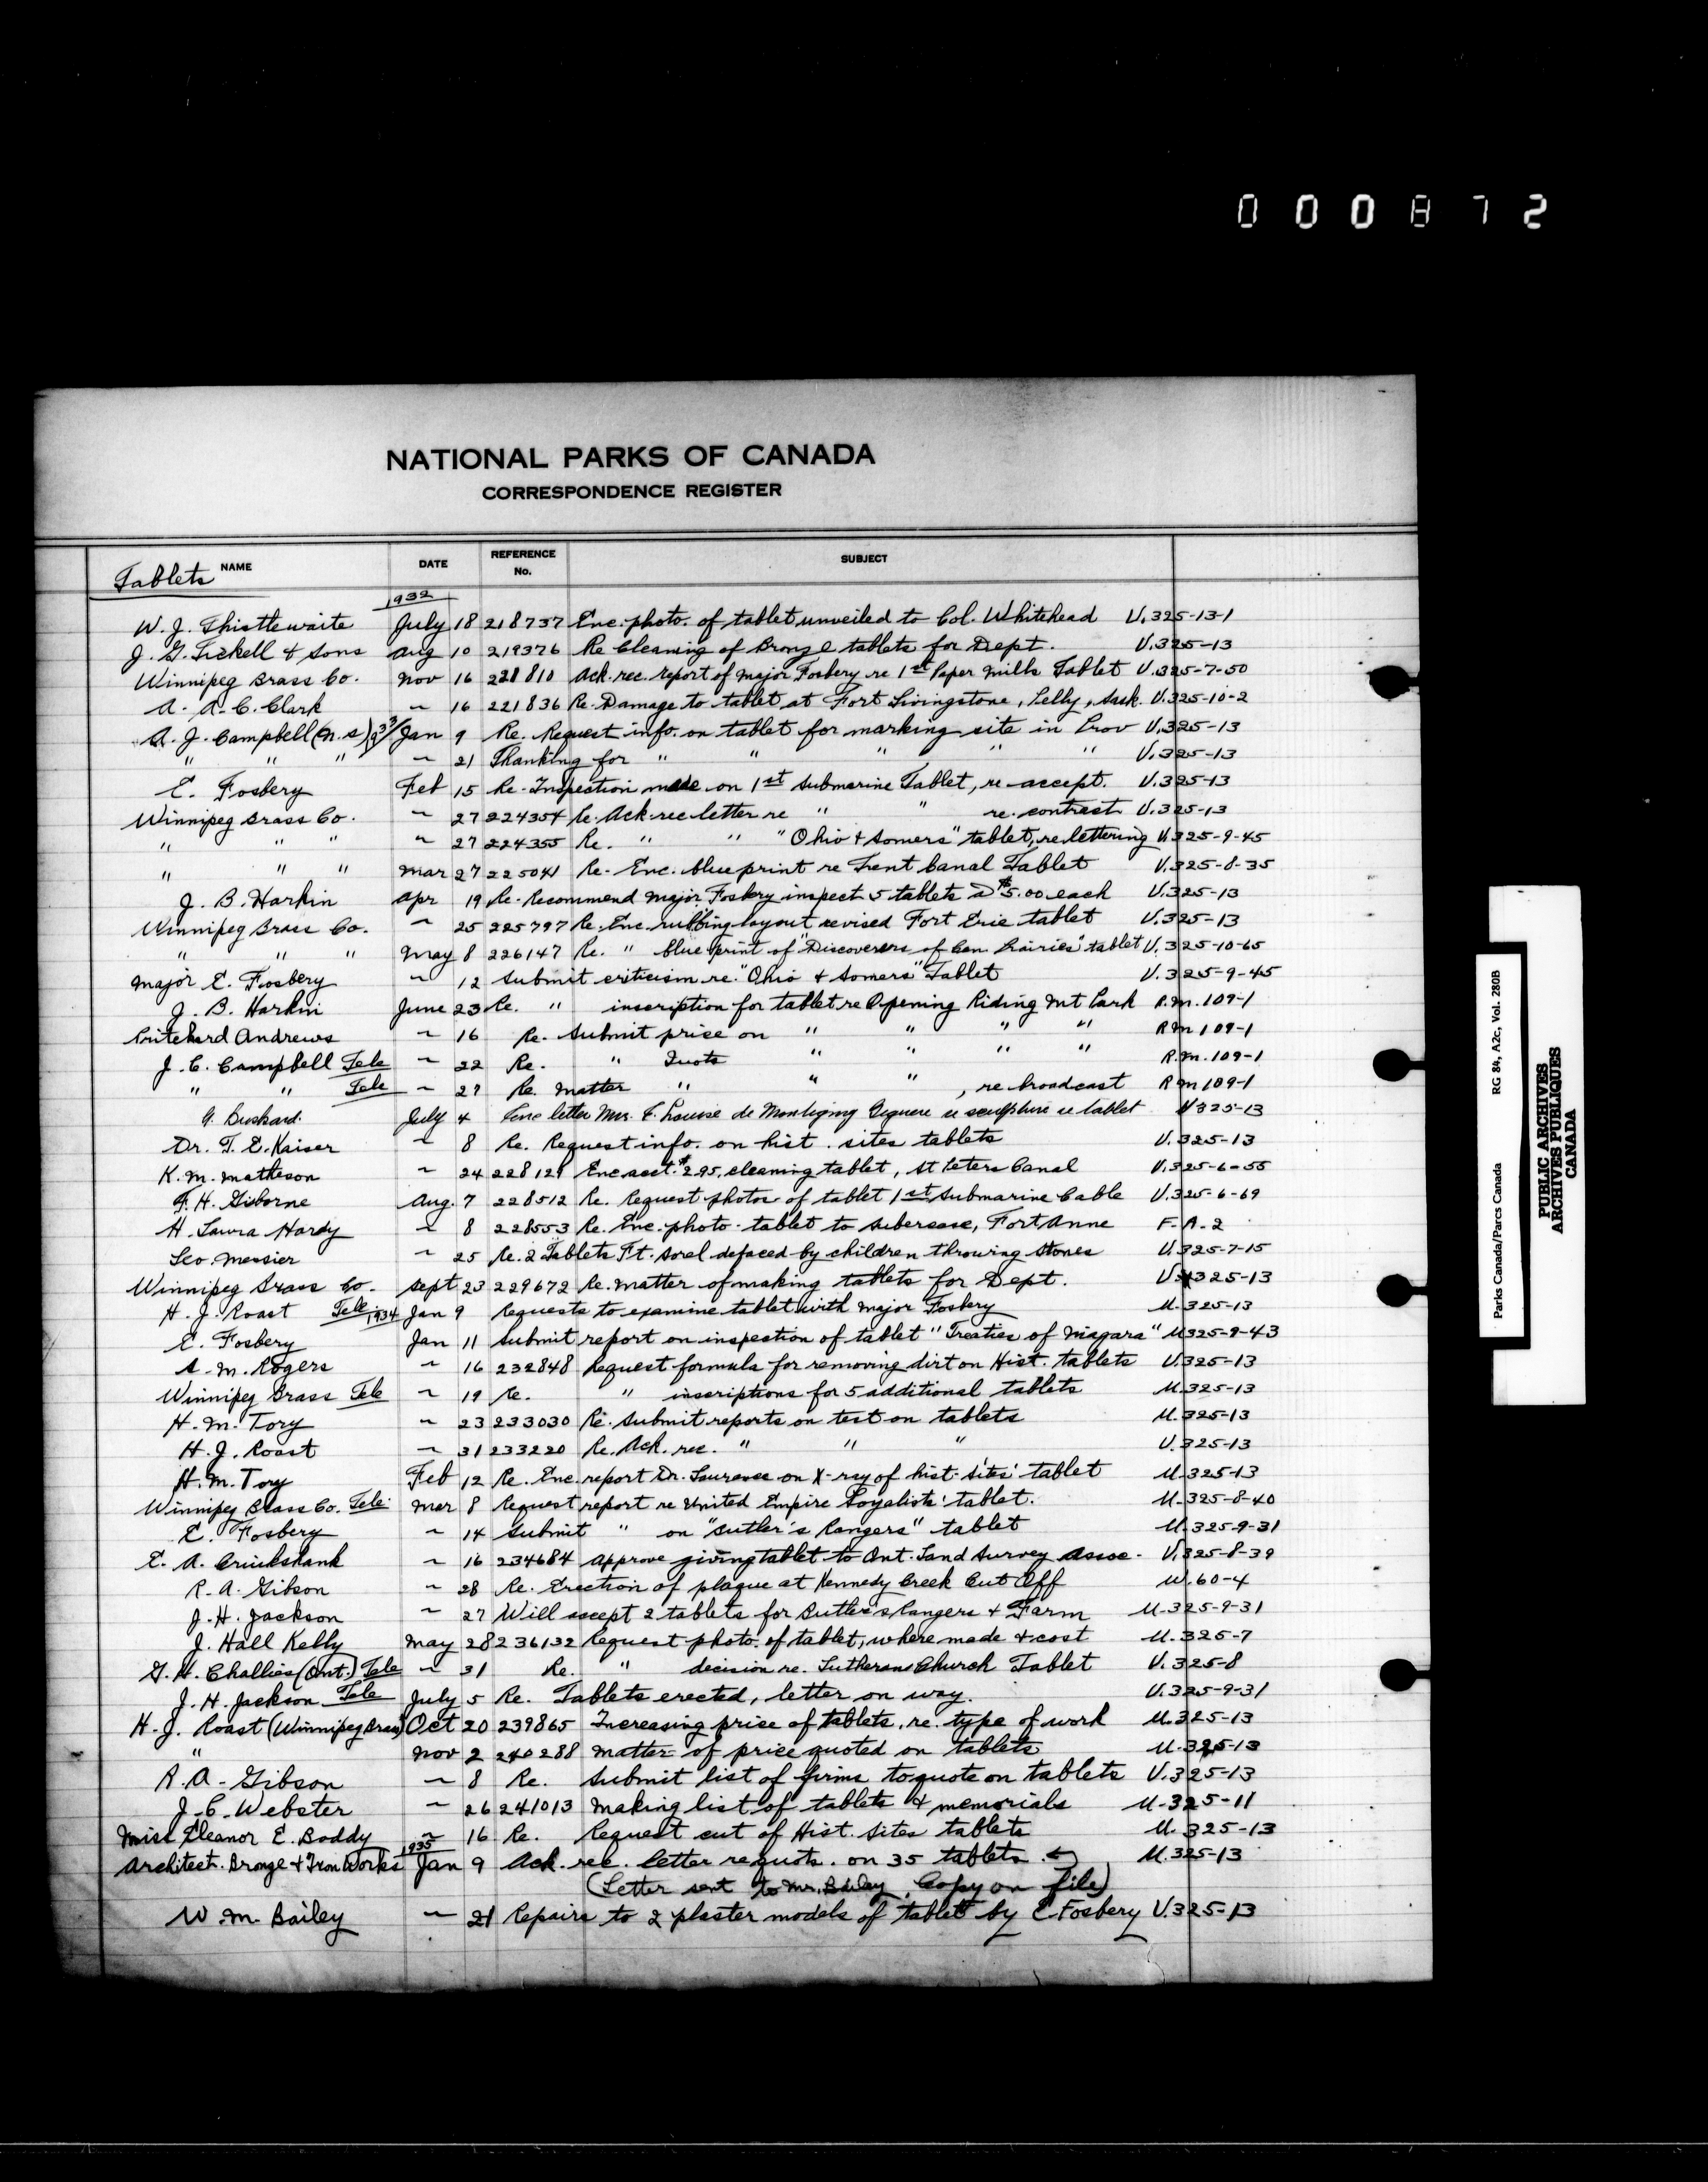 000872
NATIONAL PARKS OF CANADA
CORRESPONDENCE REGISTER
NAME DATE REFERENCE No. SUBJECT
Tablets
1932
W. J. Thistlewaite July 18 218737 Enc. photo. of tablet unveiled to Col. Whitehead U.325-13-1
J. G. Tickell & Sons Aug 10 219376 Re Cleaning of Bronze tablets for Dept. U.325-13
Winnipeg Brass Co. Nov 16 221810 Ack. rec. report of Major Fosbery re 1st Paper Mills Tablet U.325-7-50
A. A. C. Clark ~ 16 221836 Re. Damage to tablet at Fort Livingstone, Pelly, Sask. U.325-10-2
A. J. Campbell (N.S) 33/ Jan 9 Re. Request info. on tablet for marking site in Prov U.325-13
" " " ~ 21 Thanking for " " " " " U.325-13
E. Fosbery Feb 15 Re. Inspection made on 1st Submarine Tablet, re accept. U.325-13
Winnipeg Brass Co. ~ 27 224354 Re. Ack. rec letter re " " re. contract U.325-13
" " " ~ 27 224355 Re. " " "Ohio & Somers" tablet, re lettering U.325-9-45
" " " Mar 27 225041 Re. Enc. blue print re Trent Canal Tablet U.325-8-35
J. B. Harkin Apr 19 Re. Recommend Major Fosbery inspect 5 tablets @ $5.00 each U.325-13
Winnipeg Brass Co. ~ 25 225797 Re. Enc. rubbing layout revised Fort Erie tablet U.325-13
" " " May 8 226147 Re. " blue print of "Discoverers of Can. Prairies" tablet U.325-10-65
Major E. Fosbery ~ 12 Submit criticism re. "Ohio & Somers" Tablet U.325-9-45
J. B. Harkin June 23 Re. " inscription for tablet re Opening Riding Mt Park R.M.109-1
Pritchard Andrews ~ 16 Re. Submit price on " " " " R.M 109-1
J. C. Campbell Tele ~ 22 Re. " Quote " " " " R.M.109-1
" " Tele ~ 27 Re. Matter " " " , re broadcast R.M 109-1
July 4 Enc letter Mrs. F. Louise de Montigny Giguere re sculpture re tablet U325-13
Dr. T. E. Kaiser ~ 8 Re. Request info. on hist. sites tablets U.325-13
K. M. Matheson ~ 24 228129 Enc acct. $2.95, cleaning tablet, St Peters Canal U.325-6-55
F. H. Gisborne Aug. 7 228512 Re. Request photos of tablet 1st Submarine Cable U.325-6-69
H. Laura Hardy ~ 8 228553 Re. Enc. photo. tablet to Subercase, Fort Anne F-A-2
Leo. Messier ~ 25 Re. 2 Tablets Ft. Sorel defaced by children throwing stones U.325-7-15
Winnipeg Brass Co. Sept 23 229672 Re. Matter of making tablets for Dept. U.325-13
H. J. Roast Tele 1934 Jan 9 Requests to examine tablet with Major Fosbery U.325-13
E. Fosbery Jan 11 Submit report on inspection of tablet "Treaties of Niagara" U325-9-43
S. M. Rogers ~ 16 232848 Request formula for removing dirt on Hist. tablets U.325-13
Winnipeg Brass Tele ~ 19 Re. " inscriptions for 5 additional tablets U.325-13
H. M. Tory ~ 23 233030 Re. Submit reports on test on tablets U.325-13
H. J. Roast ~ 31 233220 Re. Ack. rec. " " " U.325-13
H. M. Tory Feb 12 Re. Enc. report Dr. Laurence on X-ray of hist. sites' tablet U.325-13
Winnipeg Brass Co. Tele. Mar 8 Request report re United Empire Loyalists' tablet. U.325-8-40
E. Fosbery ~ 14 Submit " on "Butler's Rangers" tablet U.325-9-31
E. A. Cruikshank ~ 16 234684 Approve giving tablet to Ont. Land Survey Assoc. U.325-8-39
R. A. Gibson ~ 28 Re. Erection of plaque at Kennedy Creek Cut Off W.60-4
J. H. Jackson ~ 27 Will accept 2 tablets for Butler's Rangers & Farm U.325-9-31
J. Hall Kelly May 28 236132 Request photo. of tablet, where made & cost U.325-7
G. H. Challies (Ont.) Tele ~ 31 Re. " decision re. Lutheran Church Tablet U.325-8
J. H. Jackson Tele July 5 Re. Tablets erected, letter on way. U.325-9-31
H. J. Roast (Winnipeg Brass) Oct 20 239865 Increasing price of tablets, re. type of work U.325-13
" Nov 2 240288 Matter of price quoted on tablets U.325-13
R. A. Gibson ~ 8 Re. Submit list of firms to quote on tablets U.325-13
J. C. Webster ~ 26 241013 Making list of tablets & memorials U-325-11
Miss Eleanor E. Boddy ~ 16 Re. Request cut of Hist. Sites tablets U.325-13
1935
Architect. Bronze & Iron Works Jan 9 Ack. rec. letter re quots. on 35 tablets U.325-13
(Letter sent to Mr. Bailey, Copy on file)
W. M. Bailey ~ 21 Repairs to 2 plaster models of tablet by E. Fosbery U.325-13
Parks Canada/Parcs Canada RG 84, A2c, Vol. 280B
PUBLIC ARCHIVES
ARCHIVES PUBLIQUES
CANADA